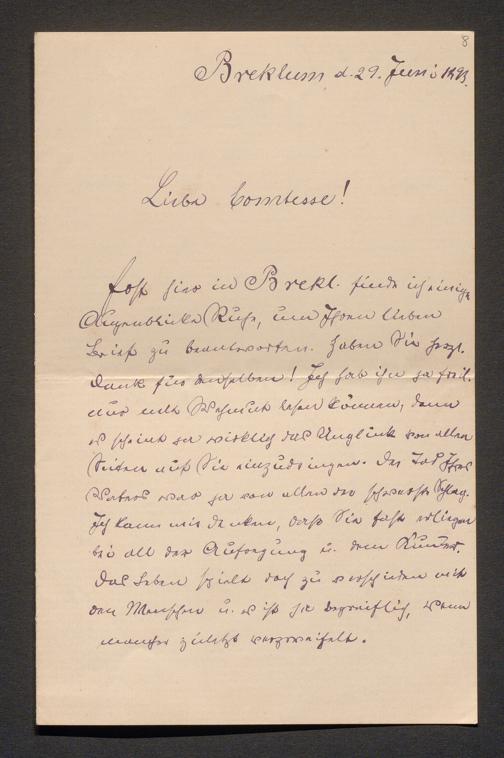 8
Breklum d. 29. Juni 1893.
Liebe Comtesse!
Erst hier in Brekl. finde ich einige
Augenblicke Ruhe, um Ihren lieben
Brief zu beantworten. Haben Sie herzl.
Dank für denselben! Ich hab ihn ja freil.
nur mit Wehmut lesen können, denn
es scheint ja wirklich das Unglück von allen
Seiten auf Sie einzudringen. Der Tod Ihres
Vaters war ja von allen der schwerste Schlag.
Ich kann mir denken, daß Sie fast erliegen
bei all der Aufregung u. dem Kummer.
Das Leben spielt doch zu verschieden mit
den Menschen u. es ist ja begreiflich, wenn
mancher zuletzt verzweifelt.